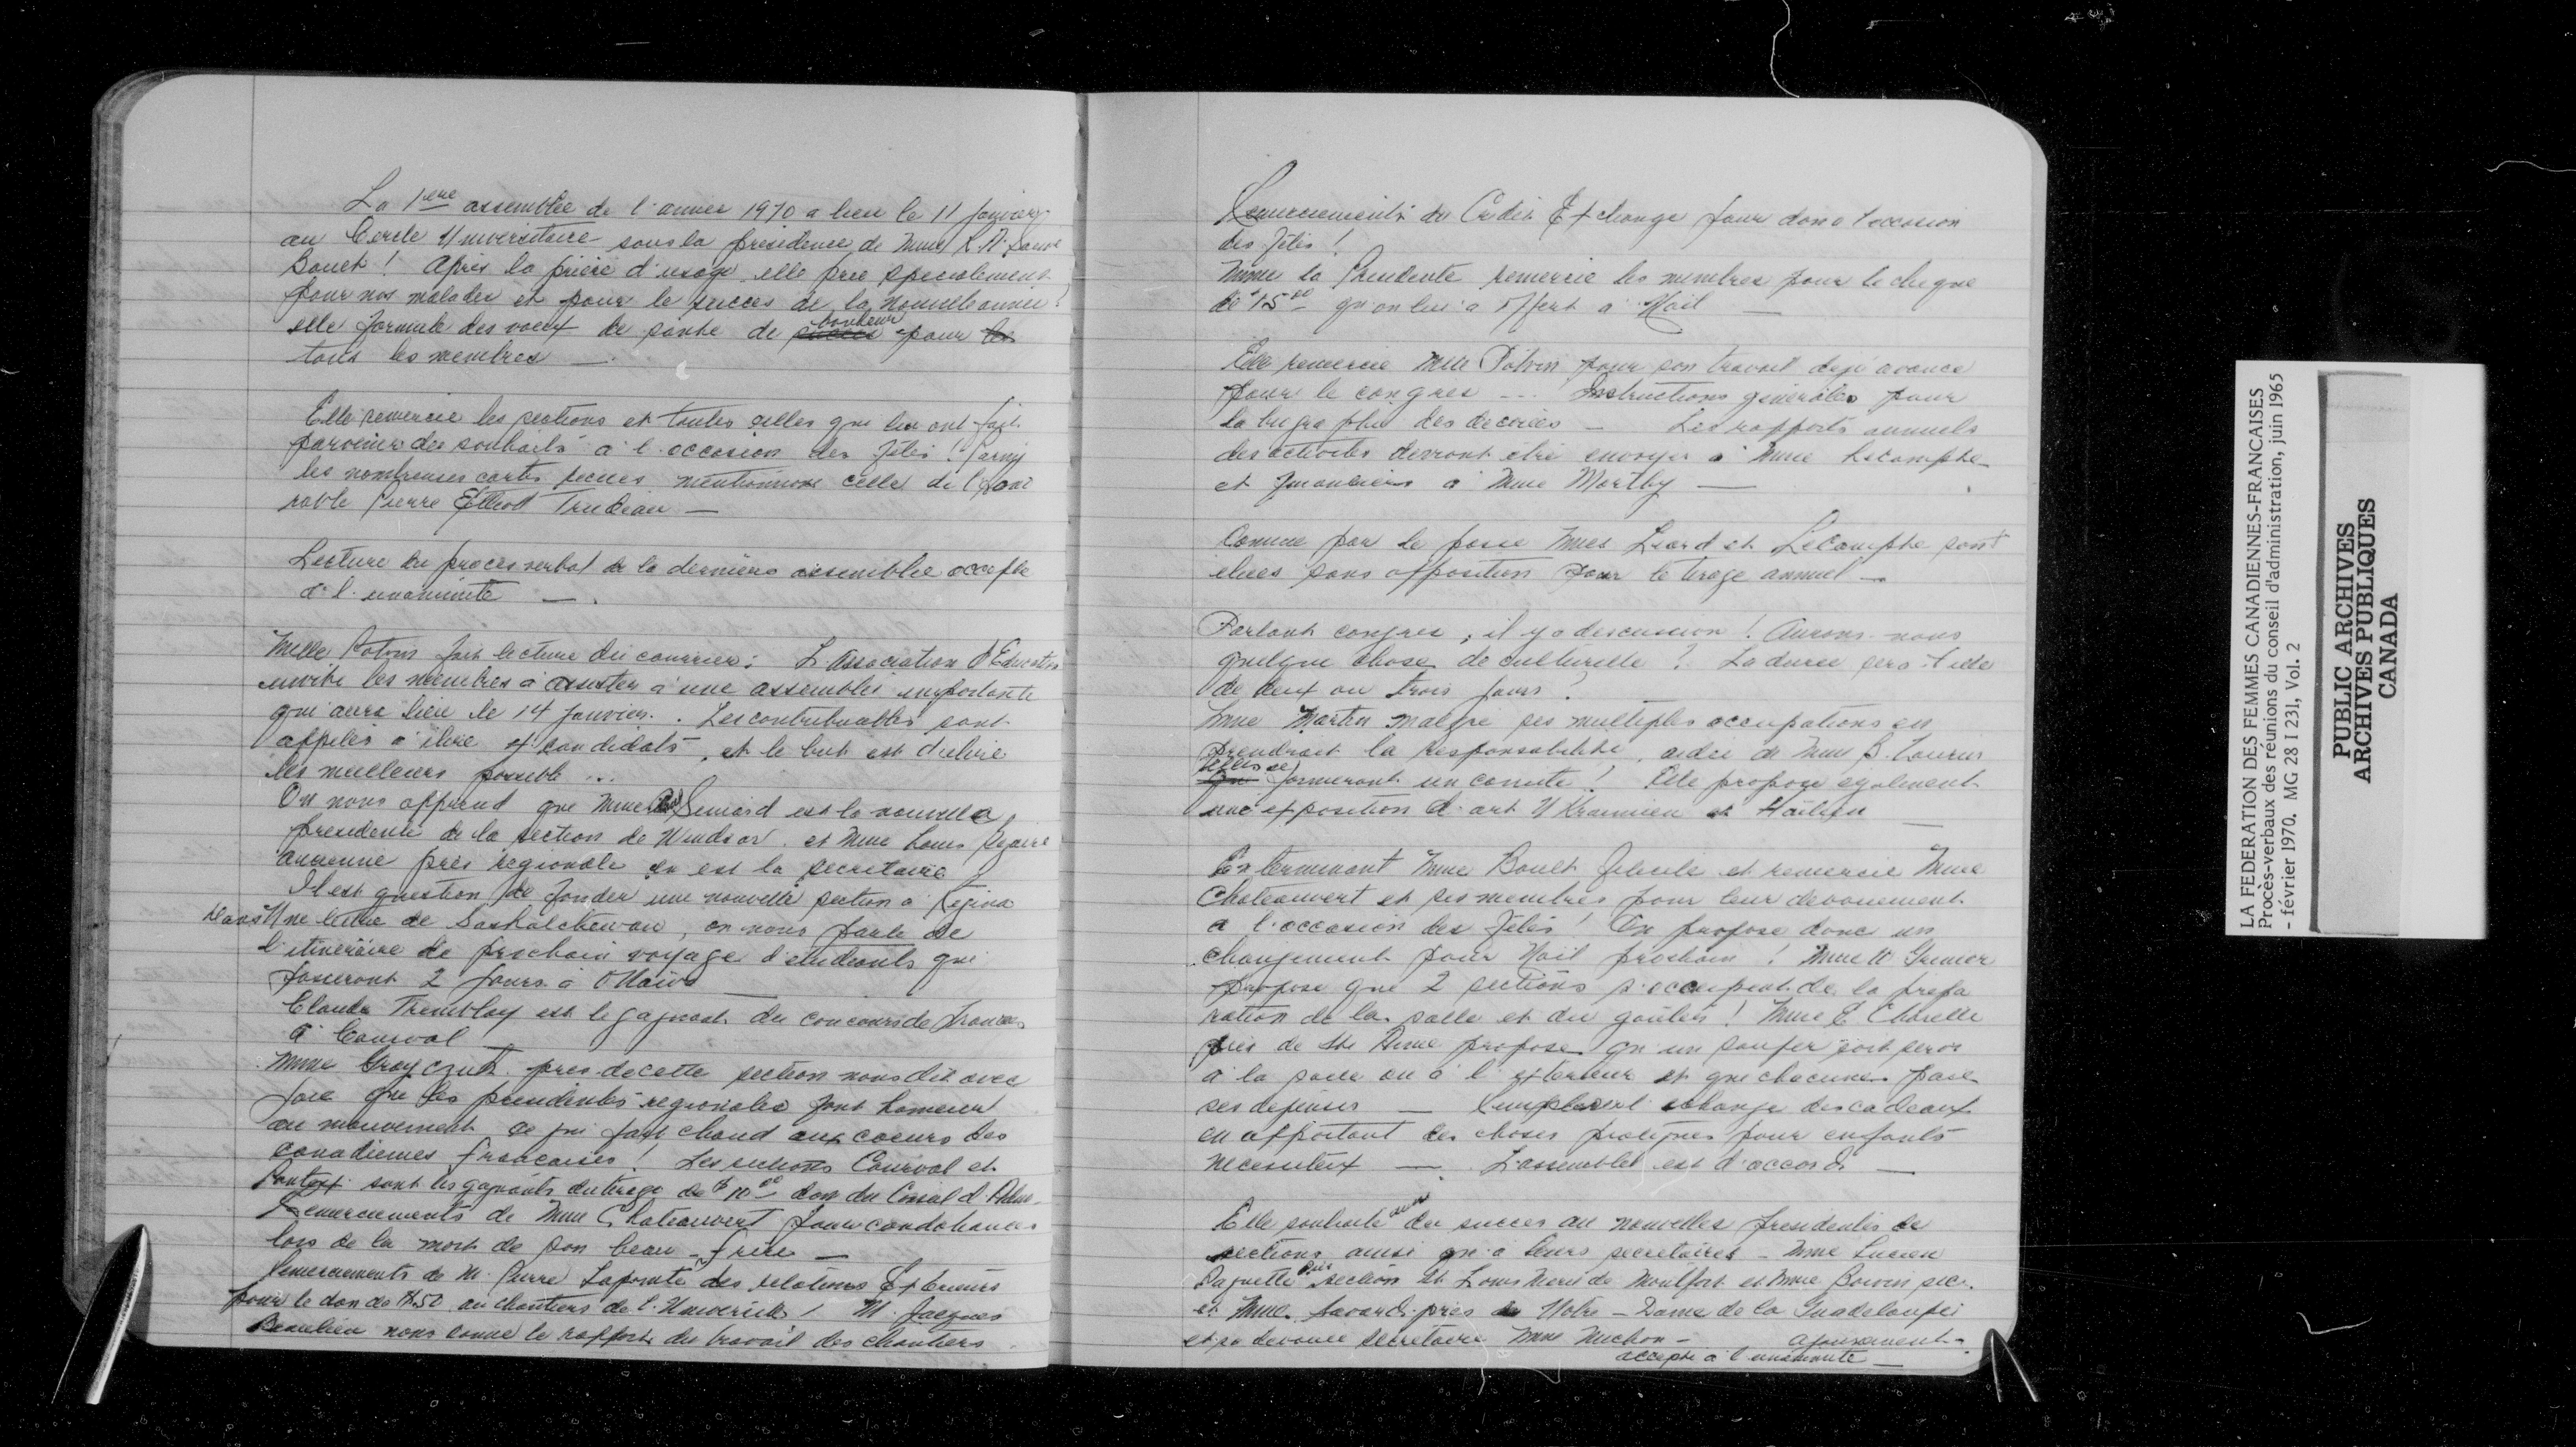 La 1ère assemblée de l'année 1970 a lieu le 11 Janvier
au Cercle Universitaire sous la présidence de Mme
Boult! Après la prière d'usage elle prie spécialement
pour nos malades et pour le succès de la nouvelle année!
elle formule des voeux de santé de bonheur pour
tous les membres —.
Elle remercie les sections et toutes celles qui lui ont fait
parvenir des souhaits à l'occasion des Fêtes! Parmi
les nombreuses cartes recues mentionnons celle de l'hono
rable Pierre Elliott Trudeau —
Lecture du procès verbal de la dernière assemblée accepté
à l'unanimité —.
Melle Potvin fait lecture du courrier: L'Association d'Education
invite les membres à assister à une assemblée importante
qui aura lieu le 14 Janvier. Les contribuables sont
appelés à élire candidats, et le but est d'elire
les meilleurs possible ...
On nous apprend que Mme Seniard est la nouvelle
presidente de la section de Windsor et Mme Louis
ancienne près régionale en est la secretaire
Il est question de fonder une nouvelle section à Regina
Dans Une lettre de Saskatchewan, on nous parle de
l'itinéraire de prochain voyage d'etudiants qui
passeront 2 jours à Ottawa —
Claude Tremblay est le gagnant du concours de francais
à Courval —
Mme près de cette section nous dit avec
joie que les presidentes régionales font honneur
au mouvement ce qui fait chaud aux coeurs des
canadiennes francaises! Les sections Courval et
Ponteix sont les gagnants du tirage de $10.00 don du Conseil d'Adm.
Remerciements de Mme Chateauvert pour condoléances
lors de la mort de son beau-frère —
Remerciements de M. Pierre Lapointe des relations Exterieurs
pour le don de au chantiers de l'Université! M. Jacques
Beaulieu nous donne le rapport du travail des chantiers
Remerciements du Crédit Exchange pour don a l'occasion
des Fêtes!
Mme la Presidente remercie les membres pour le cheque
de 15.00 qu'on lui a offert a Noël —
Elle remercie Melle Potvin pour son travail déjà avancé
pour le congrès --- Instructions générales pour
la biographie des décorées — Les rapports annuels
des activités devront être envoyés à Mme Lecompte
et financiers à Mme Marthy —
Comme par le passé Mmes Liard et LeCompte sont
élues sans opposition pour le tirage annuel —
Parlant congrès, il y a discussion! Aurons-nous
quelque chose de culturelle? La durée sera-t-elle
de deux ou trois jours?
Mme Martin malgré ses multiples occupations en
prendrait la responsabilité, aidée de Mme B.
elles se formeront un comité! Elle propose egalement
une exposition d'art Ukrainien et Haïtien —
En terminant Mme Boult félicite et remercie Mme
Chateauvert et ses membres pour leur dévouement
a l'occasion des Fêtes! On propose donc un
changement pour Noël prochain! Mme W Grenier
propose que 2 sections s'occupent de la prépa
ration de la salle et du goûter! Mme E Charette
près de Ste Anne propose qu'un souper soit servi
à la salle ou à l'exterieur et que chacunes paie
ses dépenses — échange des cadeaux
en apportant des choses pratiques pour enfants
nécessiteux — L'assemblée est d'accord —
Elle souhaite du succes au nouvelles presidentes de
sections ainsi qu'à leurs secrétaires — Mme Lucien
Paquette près section St Louis Marie de Montfort et Mme Boivin sec.
et Mme Savard près de Notre-Dame de la Guadeloupe
et sa devouée secretaire Mme Michon — ajournement.
accepté à l'unanimité —
LA FEDERATION DES FEMMES CANADIENNES-FRANCAISES
Procès-verbaux des réunions du conseil d'administration, juin 1965
- février 1970. MG 28 I 231, Vol. 2
PUBLIC ARCHIVES
ARCHIVES PUBLIQUES
CANADA